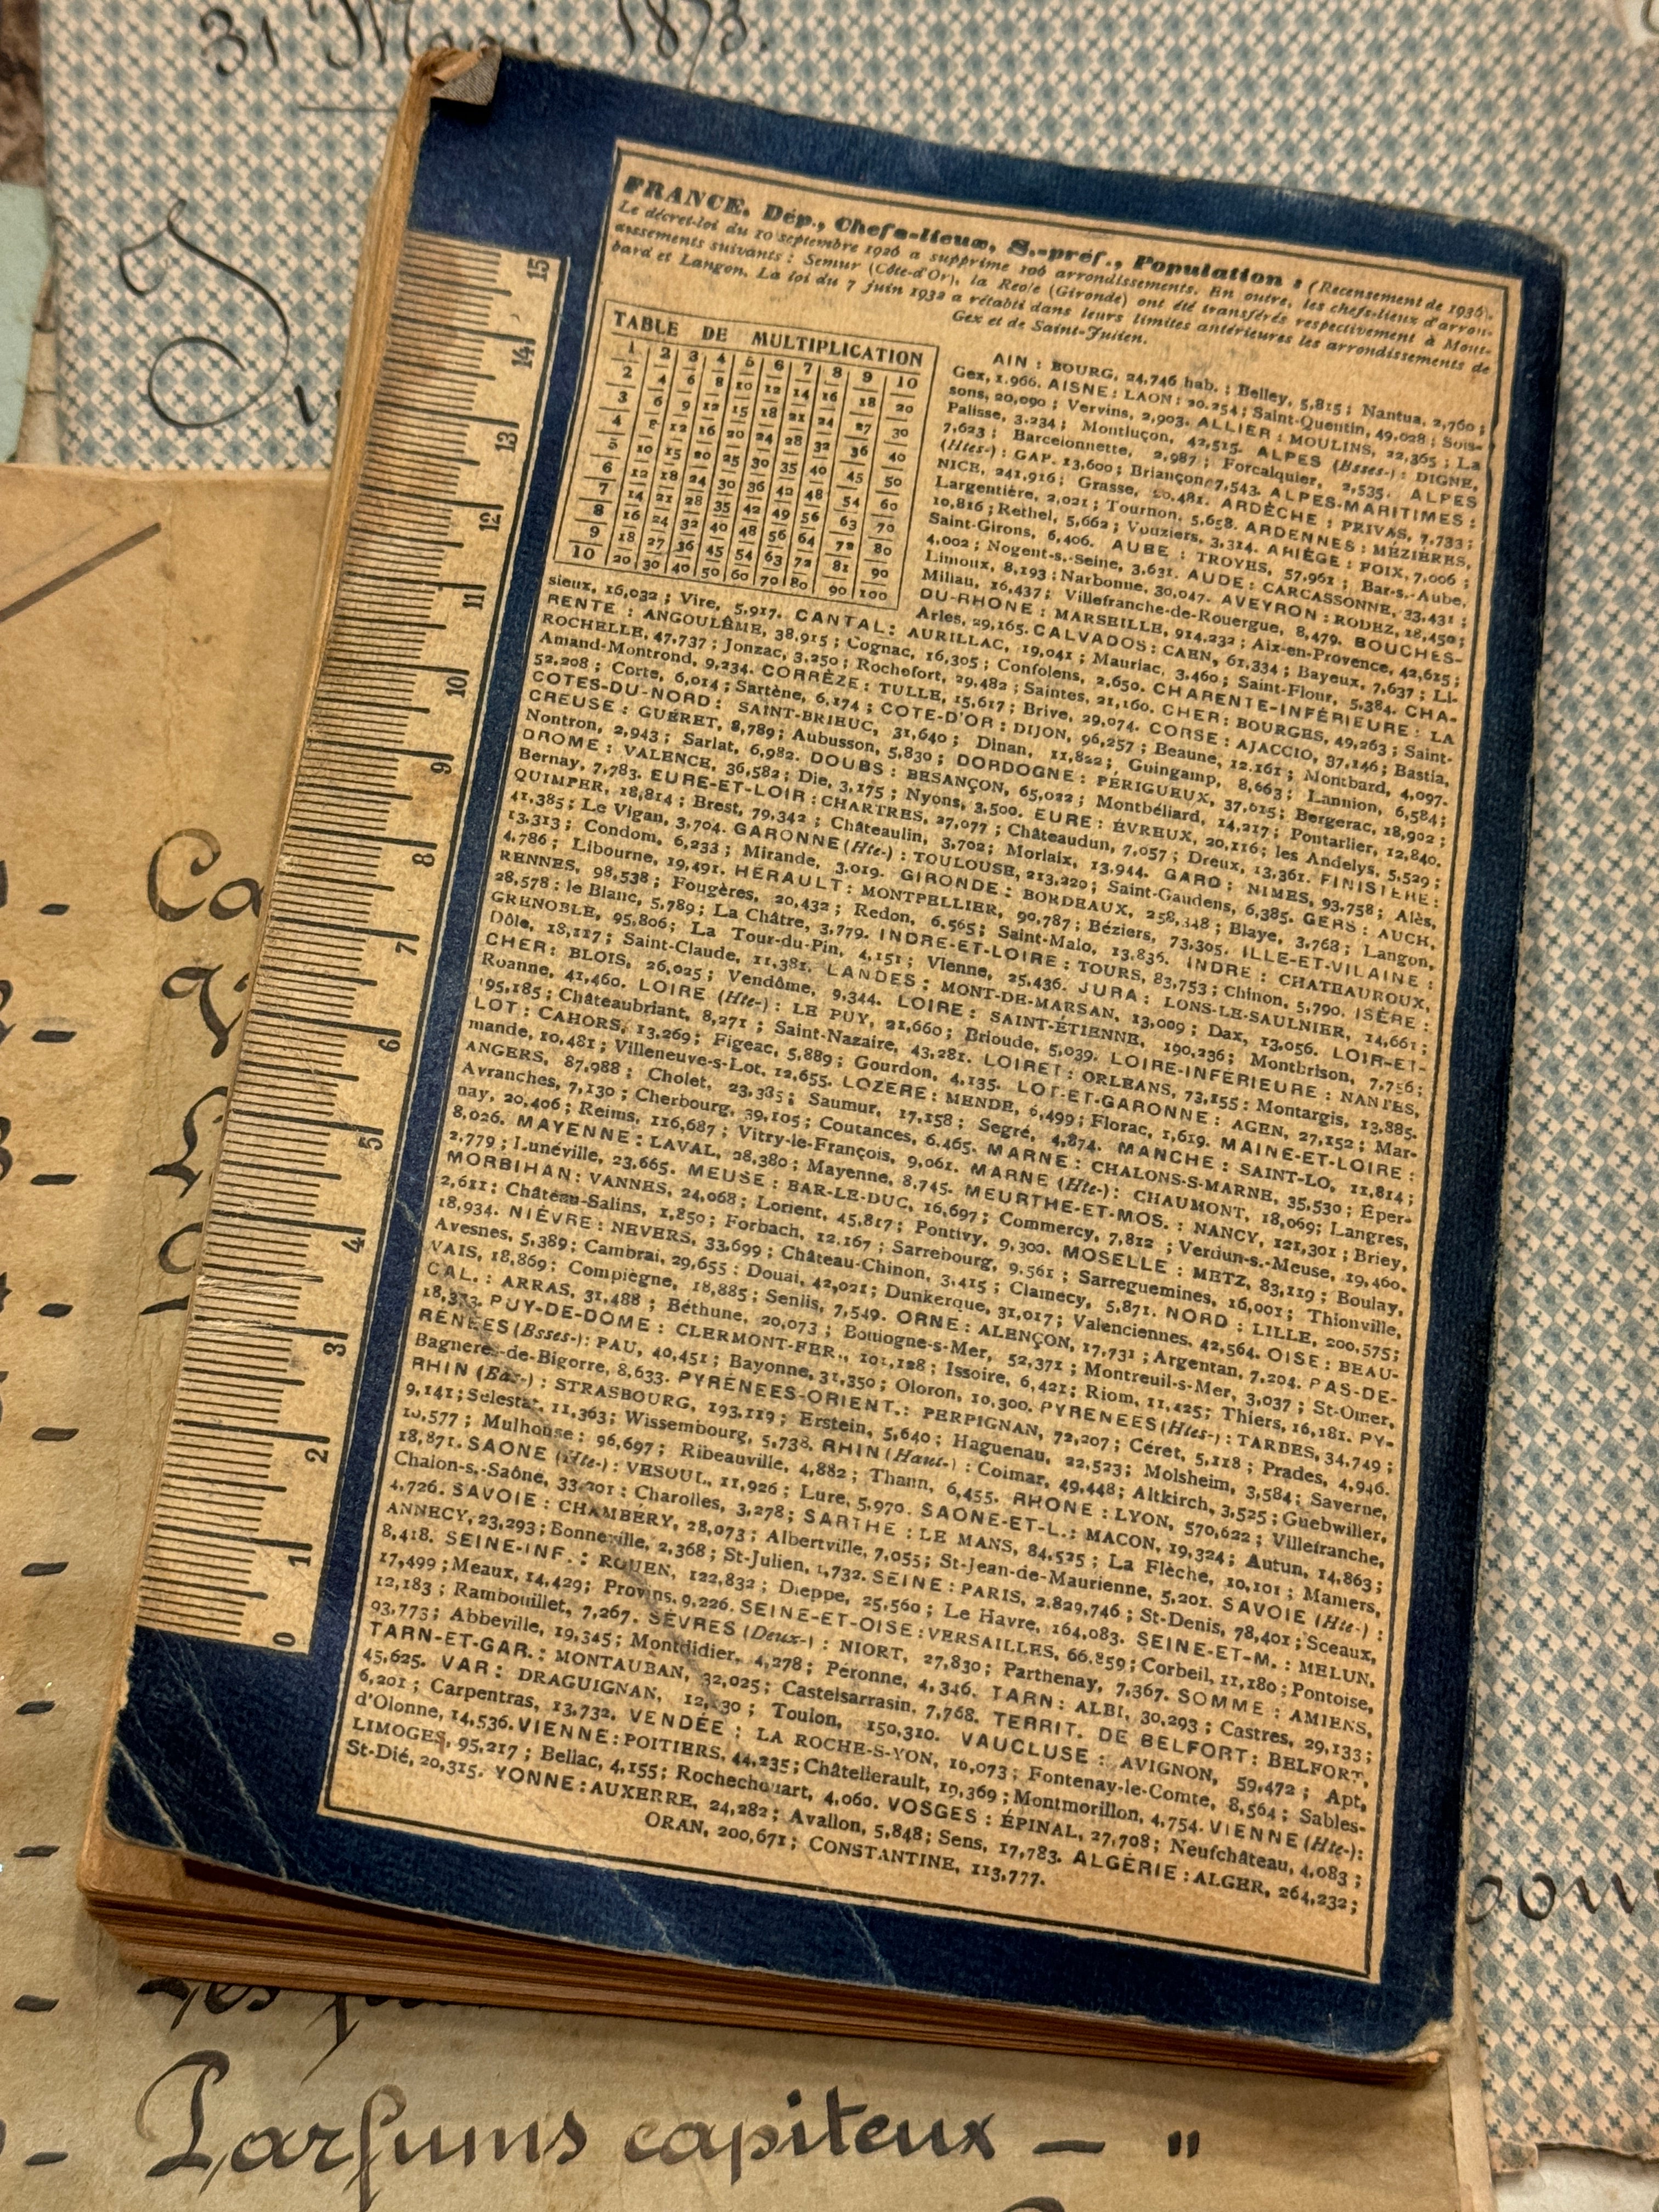 31 Mai 1873.
FRANCE. Dép., Chefs-lieux, S.-préf., Population : (Recensement de 1936).
Le décret-loi du 10 septembre 1926 a supprimé 106 arrondissements. En outre, les chefs-lieux d'arron-
dissements suivants : Semur (Côte-d'Or), la Réole (Gironde) ont été transférés respectivement à Mont-
bard et Langon. La loi du 7 juin 1932 a rétabli dans leurs limites antérieures les arrondissements de
Gex et de Saint-Julien.
TABLE DE MULTIPLICATION
1 2 3 4 5 6 7 8 9 10
2 4 6 8 10 12 14 16 18 20
3 6 9 12 15 18 21 24 27 30
4 8 12 16 20 24 28 32 36 40
5 10 15 20 25 30 35 40 45 50
6 12 18 24 30 36 42 48 54 60
7 14 21 28 35 42 49 56 63 70
8 16 24 32 40 48 56 64 72 80
9 18 27 36 45 54 63 72 81 90
10 20 30 40 50 60 70 80 90 100
AIN : BOURG, 24,746 hab. ; Belley, 5,815 ; Nantua, 2,760 ;
Gex, 1.966. AISNE : LAON : 20.254 ; Saint-Quentin, 49,028 ; Sois-
sons, 20,090 ; Vervins, 2,903. ALLIER : MOULINS, 22,365 ; La
Palisse, 3.234 ; Montluçon, 42,515. ALPES (Bsses-) : DIGNE,
7,623 ; Barcelonnette, 2,987 ; Forcalquier, 2,535. ALPES
(Htes-) : GAP. 13,600 ; Briançon, 7,543. ALPES-MARITIMES :
NICE, 241,916 ; Grasse, 20,481. ARDÈCHE : PRIVAS, 7,733 ;
Largentière, 2,021 ; Tournon, 5,658. ARDENNES : MÉZIÈRES,
10,816 ; Rethel, 5,662 ; Vouziers, 3,314. ARIÈGE : FOIX, 7,006 ;
Saint-Girons, 6,406. AUBE : TROYES, 57,961 ; Bar-s.-Aube,
4,002 ; Nogent-s.-Seine, 3,631. AUDE : CARCASSONNE, 33,431 ;
Limoux, 8,193 ; Narbonne, 30,047. AVEYRON : RODEZ, 18,450 ;
Millau, 16,437 ; Villefranche-de-Rouergue, 8,479. BOUCHES-
DU-RHONE : MARSEILLE, 914,232 ; Aix-en-Provence, 42,615 ;
Arles, 29,165. CALVADOS : CAEN, 61,334 ; Bayeux, 7,637 ; Li-
sieux, 16,032 ; Vire, 5,917. CANTAL : AURILLAC, 19,041 ; Mauriac, 3,460 ; Saint-Flour, 5,384. CHA-
RENTE : ANGOULÊME, 38,915 ; Cognac, 16,305 ; Confolens, 2,650. CHARENTE-INFÉRIEURE : LA
ROCHELLE, 47,737 ; Jonzac, 3,250 ; Rochefort, 29,482 ; Saintes, 21,160. CHER : BOURGES, 49,263 ; Saint-
Amand-Montrond, 9,234. CORRÈZE : TULLE, 15,617 ; Brive, 29,074. CORSE : AJACCIO, 37,146 ; Bastia,
52,208 ; Corte, 6,014 ; Sartène, 6,174 ; COTE-D'OR : DIJON, 96,257 ; Beaune, 12.161 ; Montbard, 4,097.
COTES-DU-NORD : SAINT-BRIEUC, 31,640 ; Dinan, 11,822 ; Guingamp, 8,663 ; Lannion, 6,584 ;
CREUSE : GUÉRET, 8,789 ; Aubusson, 5,830 ; DORDOGNE : PÉRIGUEUX, 37,615 ; Bergerac, 18,902 ;
Nontron, 2,943 ; Sarlat, 6,982. DOUBS : BESANÇON, 65,022 ; Montbéliard, 14,217 ; Pontarlier, 12,840.
DROME : VALENCE, 36,582 ; Die, 3,175 ; Nyons, 3,500. EURE : ÉVREUX, 20,116 ; les Andelys, 5,529 ;
Bernay, 7,783. EURE-ET-LOIR : CHARTRES, 27,077 ; Châteaudun, 7,057 ; Dreux, 13,361. FINISTÈRE :
QUIMPER, 18,814 ; Brest, 79,342 ; Châteaulin, 3,702 ; Morlaix, 13,944. GARD : NIMES, 93,758 ; Alès,
41,385 ; Le Vigan, 3,704. GARONNE (Hte-) : TOULOUSE, 213,220 ; Saint-Gaudens, 6,385. GERS : AUCH,
13,313 ; Condom, 6,233 ; Mirande, 3,019. GIRONDE : BORDEAUX, 258,348 ; Blaye, 3,768 ; Langon,
4,786 ; Libourne, 19,491. HÉRAULT : MONTPELLIER, 90,787 ; Béziers, 73,305. ILLE-ET-VILAINE :
RENNES, 98,538 ; Fougères, 20,432 ; Redon, 6,565 ; Saint-Malo, 13,836. INDRE : CHATEAUROUX,
28,578 ; le Blanc, 5,789 ; La Châtre, 3,779. INDRE-ET-LOIRE : TOURS, 83,753 ; Chinon, 5,790. ISÈRE :
GRENOBLE, 95,806 ; La Tour-du-Pin, 4,151 ; Vienne, 25,436. JURA : LONS-LE-SAULNIER, 14,661 ;
Dôle, 18,117 ; Saint-Claude, 11,381. LANDES : MONT-DE-MARSAN, 13,009 ; Dax, 13,056. LOIR-ET-
CHER : BLOIS, 26,025 ; Vendôme, 9,344. LOIRE : SAINT-ÉTIENNE, 190,236 ; Montbrison, 7,756 ;
Roanne, 41,460. LOIRE (Hte-) : LE PUY, 21,660 ; Brioude, 5,039. LOIRE-INFÉRIEURE : NANTES,
195,185 ; Châteaubriant, 8,271 ; Saint-Nazaire, 43,281. LOIRET : ORLÉANS, 73,155 : Montargis, 13,885.
LOT : CAHORS, 13,269 ; Figeac, 5,889 ; Gourdon, 4,135. LOT-ET-GARONNE : AGEN, 27,152 ; Mar-
mande, 10,481 ; Villeneuve-s-Lot, 12,655. LOZÈRE : MENDE, 6,499 ; Florac, 1,619. MAINE-ET-LOIRE :
ANGERS, 87,988 ; Cholet, 23,385 ; Saumur, 17,158 ; Segré, 4,874. MANCHE : SAINT-LO, 11,814 ;
Avranches, 7,130 ; Cherbourg, 39,105 ; Coutances, 6,465. MARNE : CHALONS-S-MARNE, 35,530 ; Éper-
nay, 20,406 ; Reims, 116,687 ; Vitry-le-François, 9,061. MARNE (Hte-) : CHAUMONT, 18,069 ; Langres,
8,026. MAYENNE : LAVAL, 28,380 ; Mayenne, 8,745. MEURTHE-ET-MOS. : NANCY, 121,301 ; Briey,
2,779 ; Lunéville, 23,665. MEUSE : BAR-LE-DUC, 16,697 ; Commercy, 7,812 ; Verdun-s.-Meuse, 19,460.
MORBIHAN : VANNES, 24,068 ; Lorient, 45,817 ; Pontivy, 9,300. MOSELLE : METZ, 83,119 ; Boulay,
2,611 ; Château-Salins, 1,850 ; Forbach, 12,167 ; Sarrebourg, 9,561 ; Sarreguemines, 16,001 ; Thionville,
18,934. NIÈVRE : NEVERS, 33,699 ; Château-Chinon, 3,415 ; Clamecy, 5,871. NORD : LILLE, 200,575 ;
Avesnes, 5,389 ; Cambrai, 29,655 : Douai, 42,021 ; Dunkerque, 31,017 ; Valenciennes, 42,564. OISE : BEAU-
VAIS, 18,869 ; Compiègne, 18,885 ; Senlis, 7,549. ORNE : ALENÇON, 17,731 ; Argentan, 7,204. PAS-DE-
CAL. : ARRAS, 31,488 ; Béthune, 20,073 ; Boulogne-s-Mer, 52,371 ; Montreuil-s-Mer, 3,037 ; St-Omer,
18,373. PUY-DE-DOME : CLERMONT-FER., 101,128 ; Issoire, 6,421 ; Riom, 11,425 ; Thiers, 16,181. PY-
RÉNÉES (Bsses-) : PAU, 40,451 ; Bayonne, 31,350 ; Oloron, 10,300. PYRÉNÉES (Htes-) : TARBES, 34,749 ;
Bagnères-de-Bigorre, 8,633. PYRÉNÉES-ORIENT. : PERPIGNAN, 72,207 ; Céret, 5,118 ; Prades, 4,946.
RHIN (Bas-) : STRASBOURG, 193,119 ; Erstein, 5,640 ; Haguenau, 22,523 ; Molsheim, 3,584 ; Saverne,
9,141 ; Sélestat, 11,363 ; Wissembourg, 5,738. RHIN (Haut-) : Colmar, 49,448 ; Altkirch, 3,525 ; Guebwiller,
10,577 ; Mulhouse : 96,697 ; Ribeauville, 4,882 ; Thann, 6,455. RHONE : LYON, 570,622 ; Villefranche,
18,871. SAONE (Hte-) : VESOUL, 11,926 ; Lure, 5,970. SAONE-ET-L. : MACON, 19,324 ; Autun, 14,863 ;
Chalon-s.-Saône, 33,201 : Charolles, 3,278 ; SARTHE : LE MANS, 84,525 ; La Flèche, 10,101 ; Mamers,
4,726. SAVOIE : CHAMBÉRY, 28,073 ; Albertville, 7,055 ; St-Jean-de-Maurienne, 5,201. SAVOIE (Hte-) :
ANNECY, 23,293 ; Bonneville, 2,368 ; St-Julien, 1,732. SEINE : PARIS, 2.829,746 ; St-Denis, 78,401 ; Sceaux,
8,418. SEINE-INF. : ROUEN, 122,832 ; Dieppe, 25,560 ; Le Havre, 164,083. SEINE-ET-M. : MELUN,
17,499 ; Meaux, 14,429 ; Provins, 9,226. SEINE-ET-OISE : VERSAILLES, 66,859 ; Corbeil, 11,180 ; Pontoise,
12,183 ; Rambouillet, 7,267. SÈVRES (Deux-) : NIORT, 27,830 ; Parthenay, 7,367. SOMME : AMIENS,
93,773 ; Abbeville, 19,345 ; Montdidier, 4,278 ; Péronne, 4,346. TARN : ALBI, 30,293 ; Castres, 29,133 ;
TARN-ET-GAR. : MONTAUBAN, 32,025 ; Castelsarrasin, 7,768. TERRIT. DE BELFORT : BELFORT,
45,625. VAR : DRAGUIGNAN, ; Toulon, 150,310. VAUCLUSE : AVIGNON, 59,472 ; Apt,
6,201 ; Carpentras, 13,732. VENDÉE : LA ROCHE-S-YON, 16,073 ; Fontenay-le-Comte, 8,564 ; Sables-
d'Olonne, 14,536. VIENNE : POITIERS, 44,235 ; Châtellerault, 19,369 ; Montmorillon, 4,754. VIENNE (Hte-) :
LIMOGES, 95,217 ; Bellac, 4,155 ; Rochechouart, 4,060. VOSGES : ÉPINAL, 27,708 ; Neufchâteau, 4,083 ;
St-Dié, 20,315. YONNE : AUXERRE, 24,282 ; Avallon, 5,848 ; Sens, 17,783. ALGÉRIE : ALGER, 264,232 ;
ORAN, 200,671 ; CONSTANTINE, 113,777.
15
14
13
12
11
10
9
8
7
6
5
4
3
2
1
0
Parfums capiteux — "